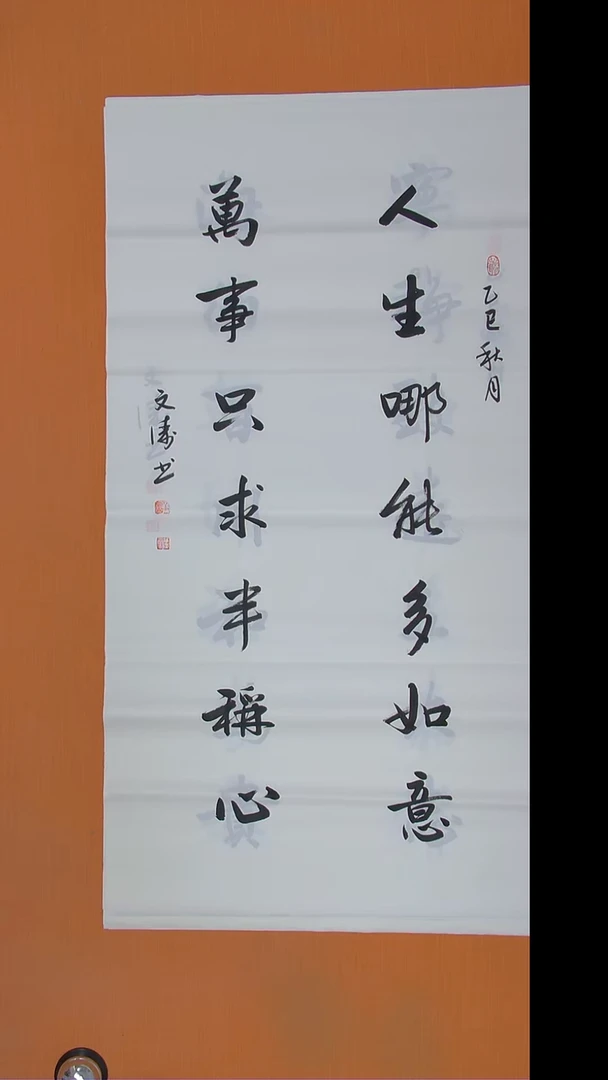 乙巳秋月
人生哪能多如意
萬事只求半稱心
文涛书